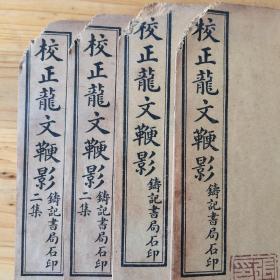 校正龍文鞭影 鑄記書局石印
校正龍文鞭影 鑄記書局石印
校正龍文鞭影二集 鑄記書局石印
校正龍文鞭影二集 鑄記書局石印